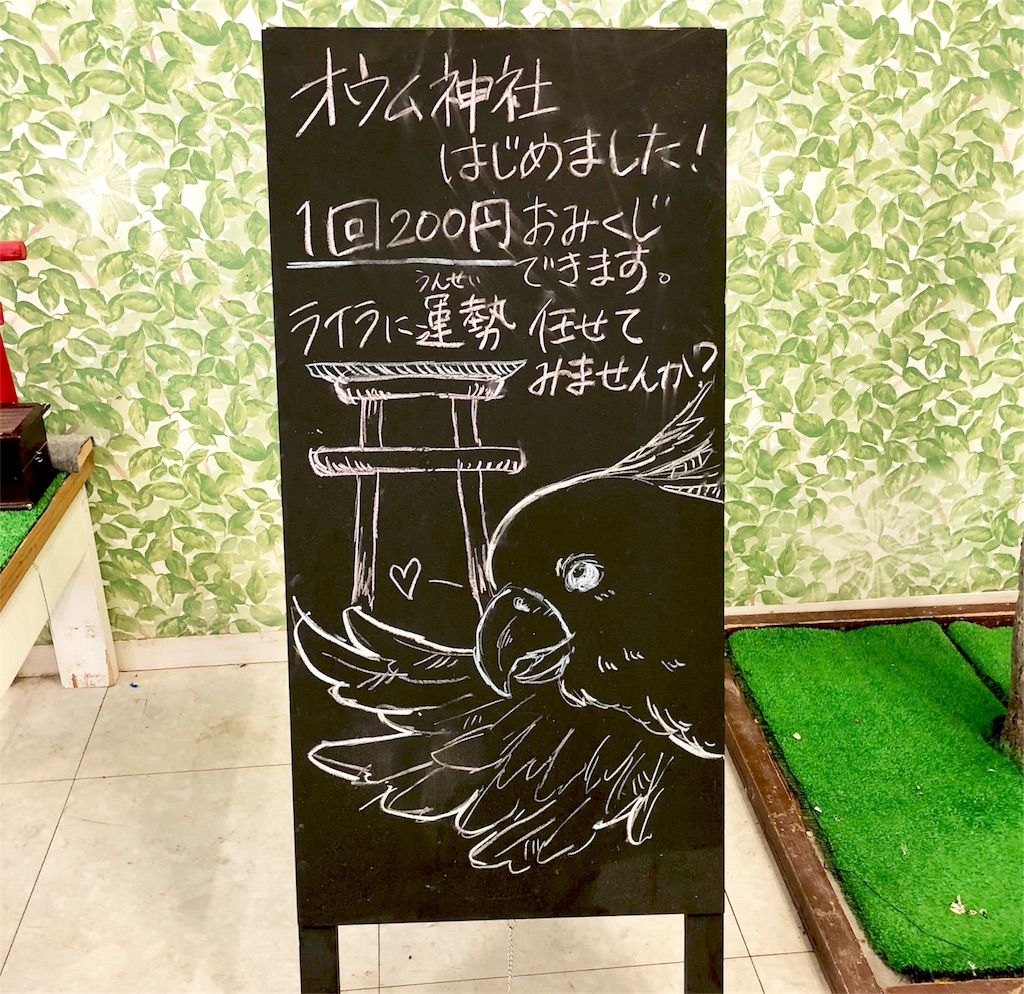 オウム神社
はじめました!
1回200円おみくじ
できます。
うんせい
ライラに運勢 任せて
みませんか?